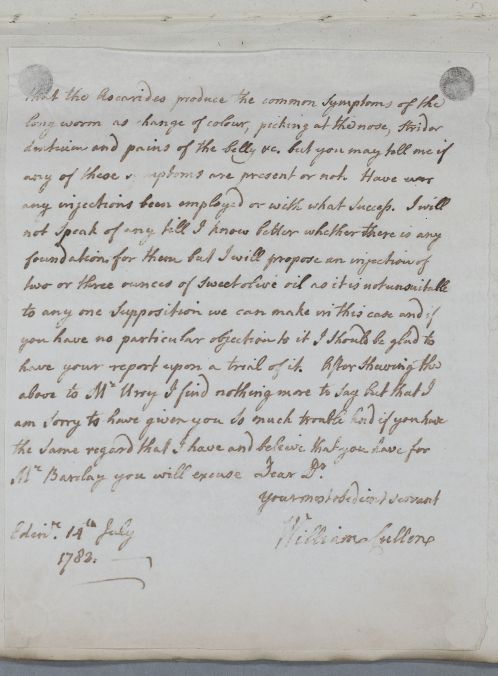 that the Ascarides produce the common symptoms of the
long worm as change of colour, picking at the nose, stridor
dentium and pains of the belly &c. but you may tell me if
any of these symptoms are present or not. Have ever
any injections been employed or with what success. I will
not speak of any till I know better whether there is any
foundation for them but I will propose an injection of
two or three ounces of sweet olive oil as it is not unsuitable
to any one supposition we can make in this case and if
you have no particular objection to it I should be glad to
have your report upon a trial of it. After shewing the
above to Mr Urry I find nothing more to say but that I
am sorry to have given you so much trouble and if you have
the same regard that I have and beleive that you have for
Mr Barclay you will excuse Dear Dr.
your most obedient servant
William Cullen
Edinr. 14th July
1782.